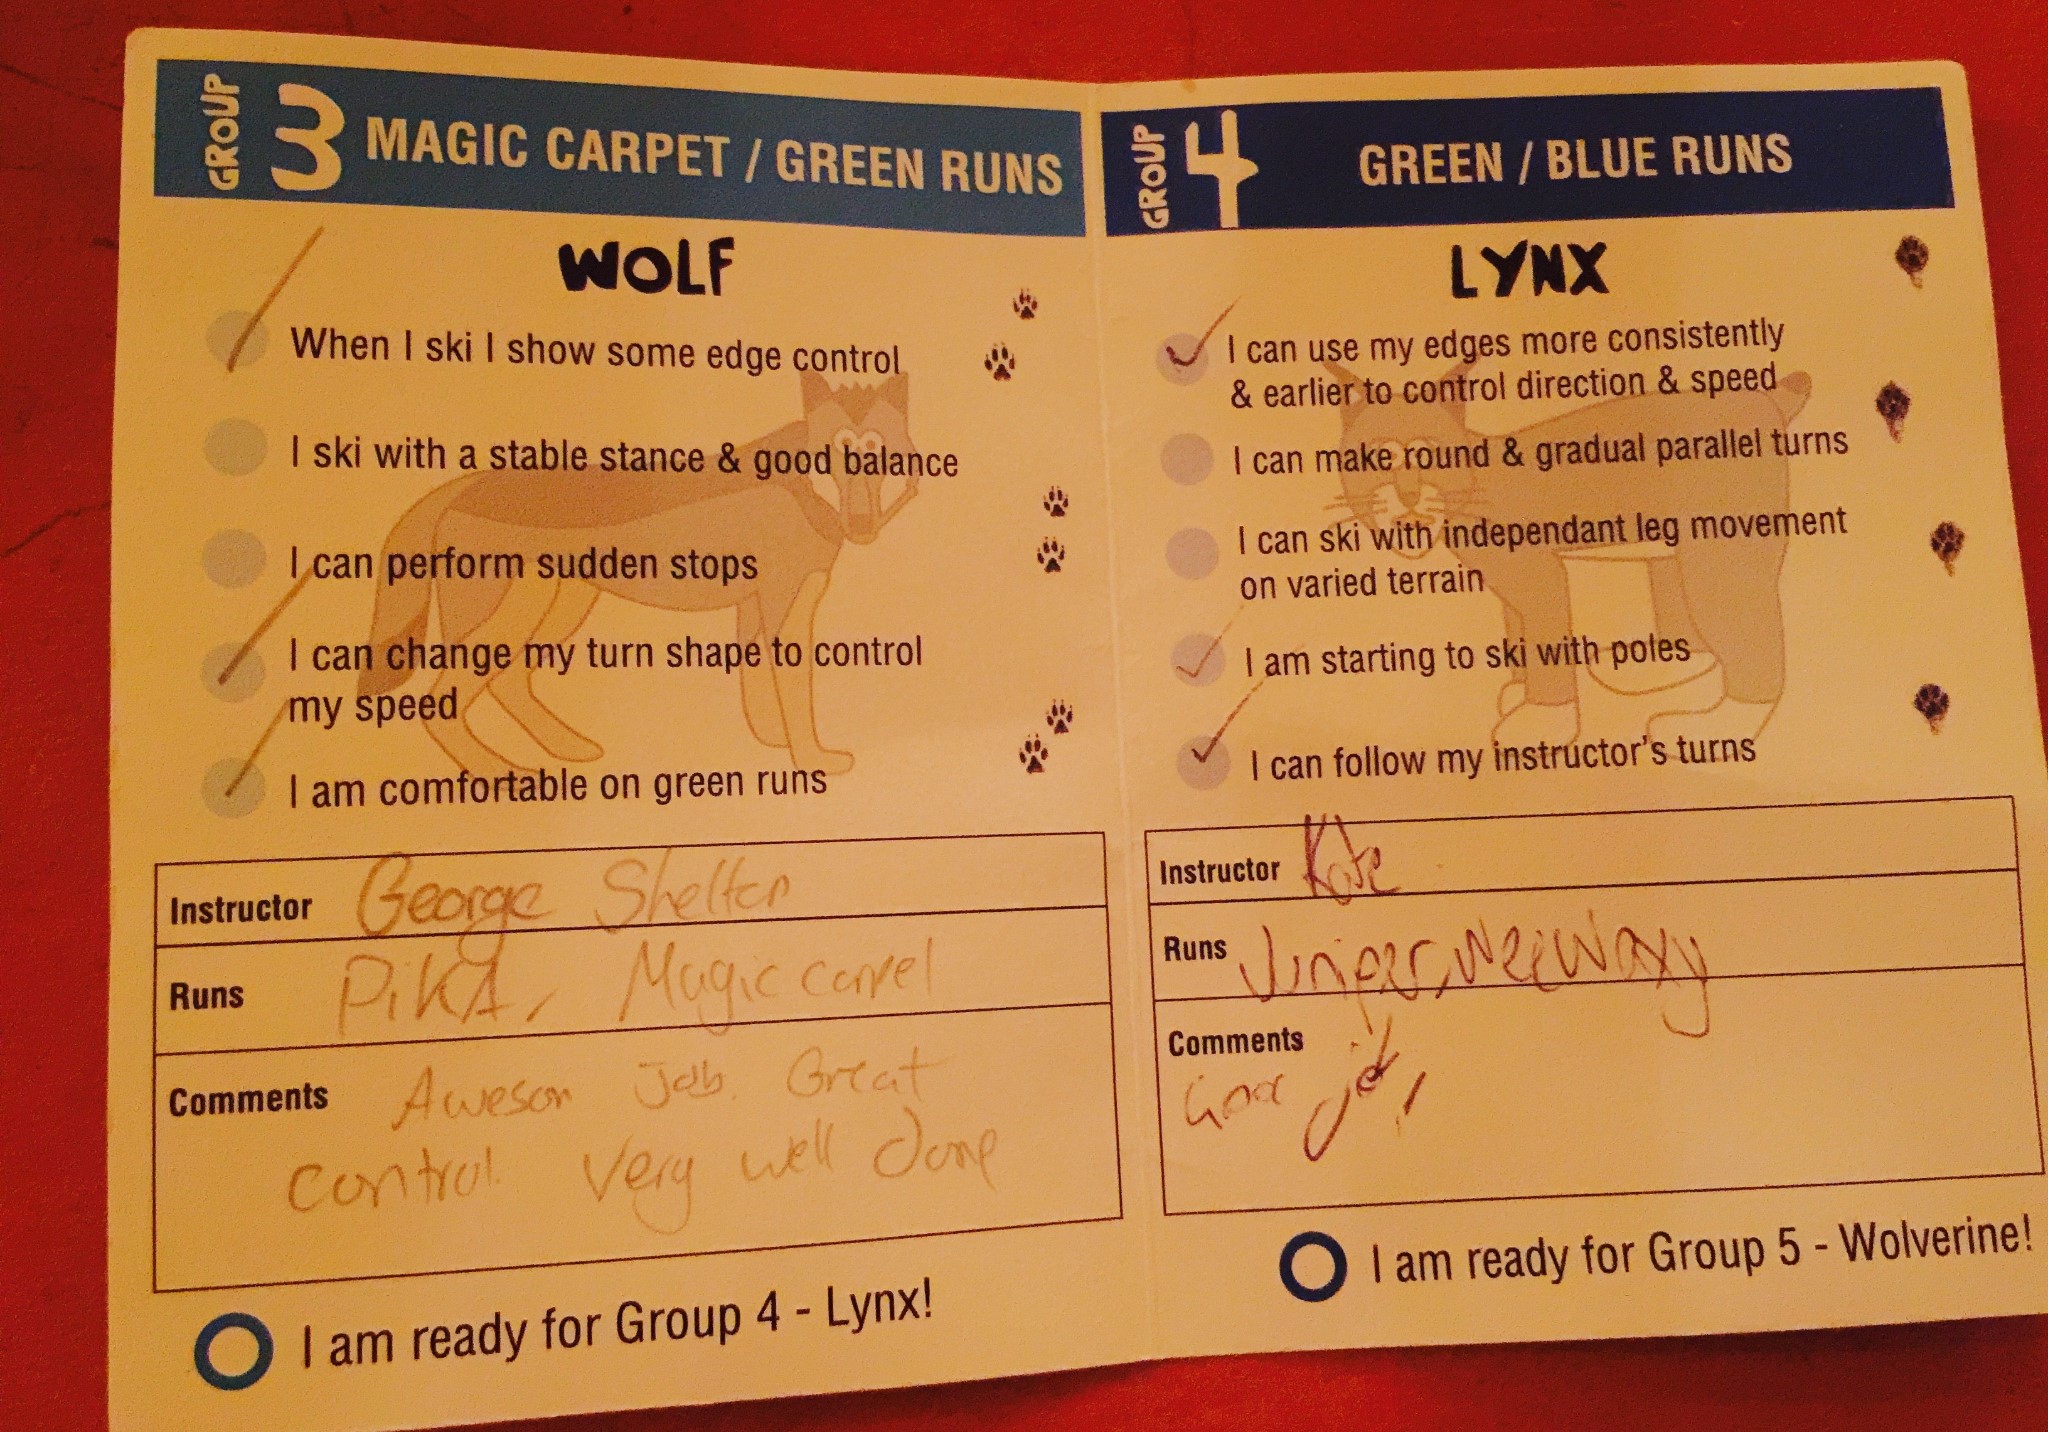 GROUP 3 MAGIC CARPET / GREEN RUNS
WOLF
When I ski I show some edge control
I ski with a stable stance & good balance
I can perform sudden stops
I can change my turn shape to control
my speed
I am comfortable on green runs
Instructor George
Runs PiKA, Magic
Comments Awesom Job. Great
control. Very well done
I am ready for Group 4 - Lynx!
GROUP 4 GREEN / BLUE RUNS
LYNX
I can use my edges more consistently
& earlier to control direction & speed
I can make round & gradual parallel turns
I can ski with independant leg movement
on varied terrain
I am starting to ski with poles
I can follow my instructor's turns
Instructor Kate
Runs Juniper,
Comments
I am ready for Group 5 - Wolverine!